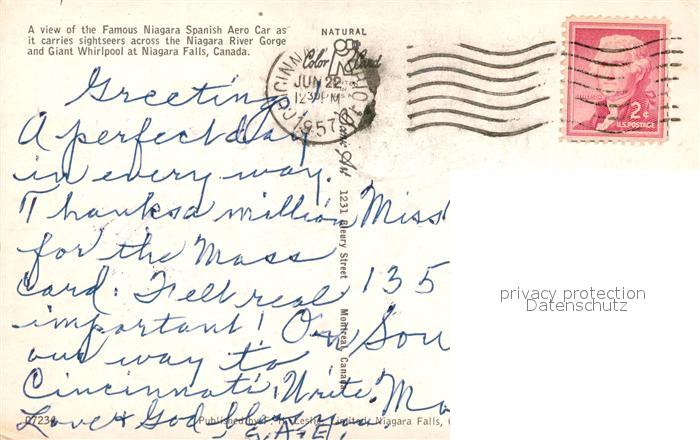 A view of the Famous Niagara Spanish Aero Car as
it carries sightseers across the Niagara River Gorge
and Giant Whirlpool at Niagara Falls, Canada.
NATURAL
Color
CINCINNATI OHIO
JUN 22
12 30 PM
1957
2¢
U.S. POSTAGE
Greetings!
A perfect day
in every way.
Thanks a million
for the Mass
Card. Felt real
important! On
our way to
Cincinnati. Write.
Love & God bless
Miss
135
Sou
Ma
1231 Bleury Street Montreal, Canada
privacy protection
Datenschutz
Published by F. H. Leslie, Limited, Niagara Falls,